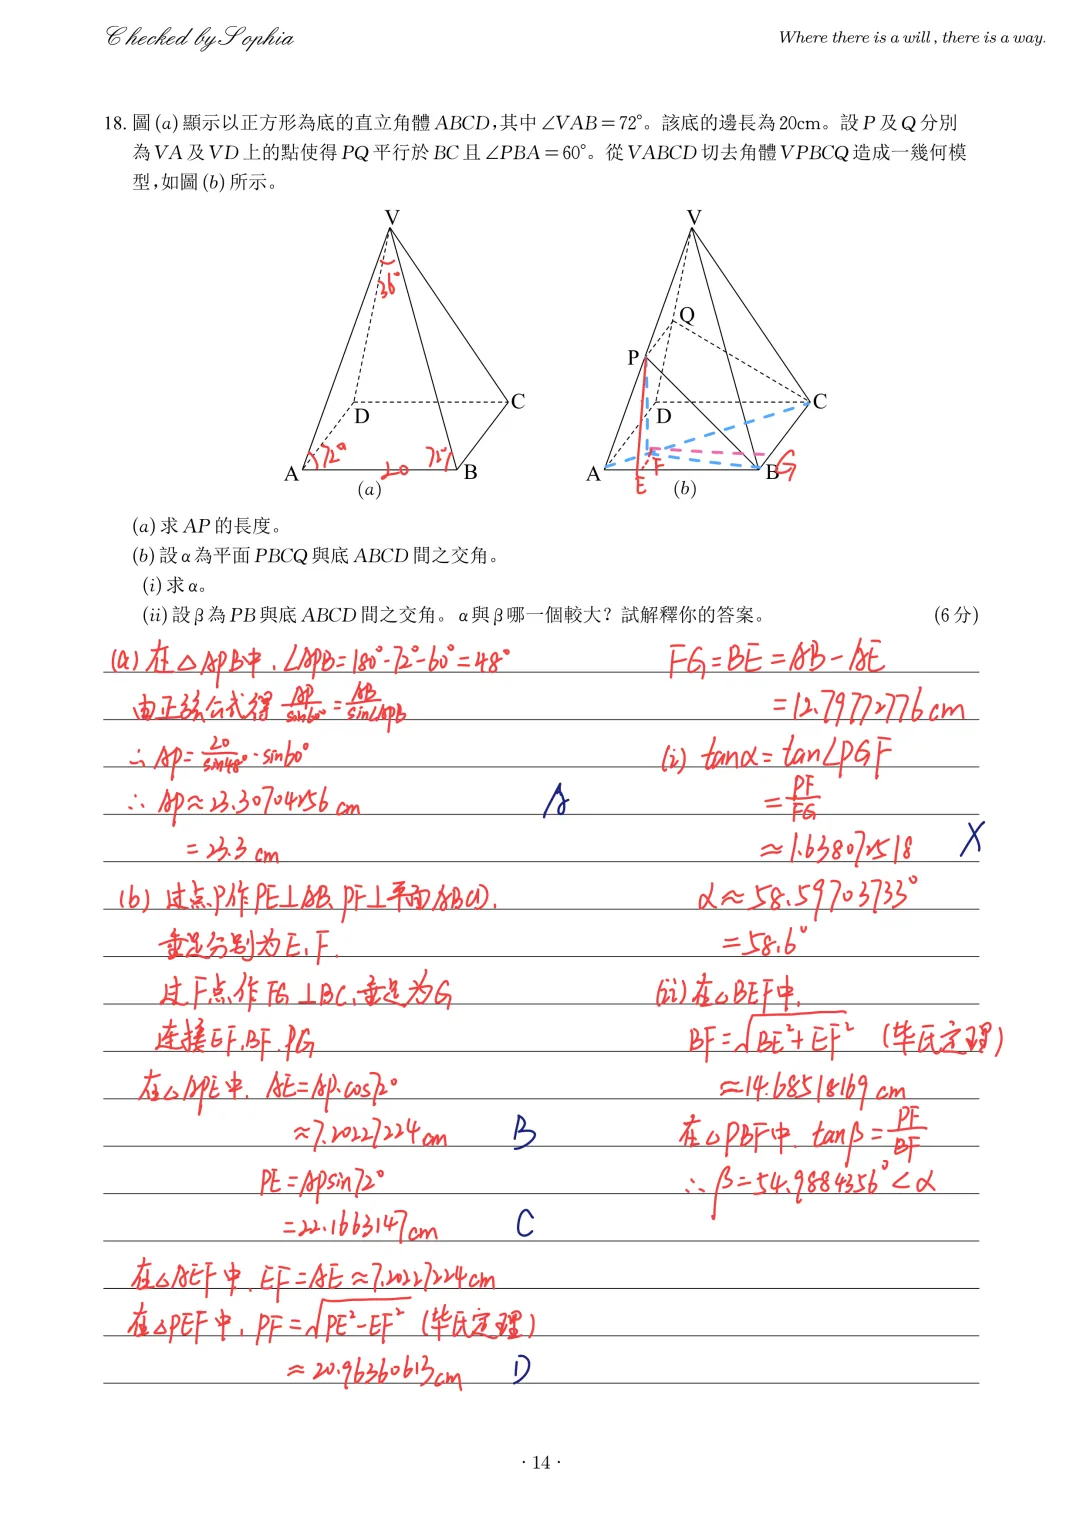 Checked by Sophia
Where there is a will , there is a way.
18. 圖 (a) 顯示以正方形為底的直立角體 ABCD,其中 ∠VAB = 72°。該底的邊長為 20cm。設 P 及 Q 分別
為 VA 及 VD 上的點使得 PQ 平行於 BC 且 ∠PBA = 60°。從 VABCD 切去角體 VPBCQ 造成一幾何模
型,如圖 (b) 所示。
V
36°
D
C
A
72°
20
72°
B
(a)
V
Q
P
D
C
A
E
F
B
G
(b)
(a) 求 AP 的長度。
(b) 設 α 為平面 PBCQ 與底 ABCD 間之交角。
(i) 求 α。
(ii) 設 β 為 PB 與底 ABCD 間之交角。α 與 β 哪一個較大?試解釋你的答案。 (6 分)
(a) 在△APB中, ∠APB=180°-72°-60°=48°
由正弦公式得 AP/sin60° = AB/sin∠APB
∴ AP= 20/sin48° · sin60°
∴ AP≈23.30704256 cm A
= 23.3 cm
(b) 过点P作PE⊥AB, PF⊥平面ABCD,
垂足分别为E、F.
过F点作FG⊥BC,垂足为G
连接EF,BF,PG
在△APE中, AE=AP·cos72°
≈7.20227224cm B
PE=APsin72°
=22.1663147cm C
在△AEF中, EF=AE≈7.20227224cm
在△PEF中, PF=√PE²-EF² (毕氏定理)
≈20.96360613cm D
FG=BE=AB-AE
=12.79772776cm
(i) tanα=tan∠PGF
= PF/FG
≈1.638072518 X
α≈58.59703733°
=58.6°
(ii) 在△BEF中,
BF=√BE²+EF² (毕氏定理)
≈14.68518169 cm
在△PBF中, tanβ= PF/BF
∴ β=54.9884356°<α
· 14 ·